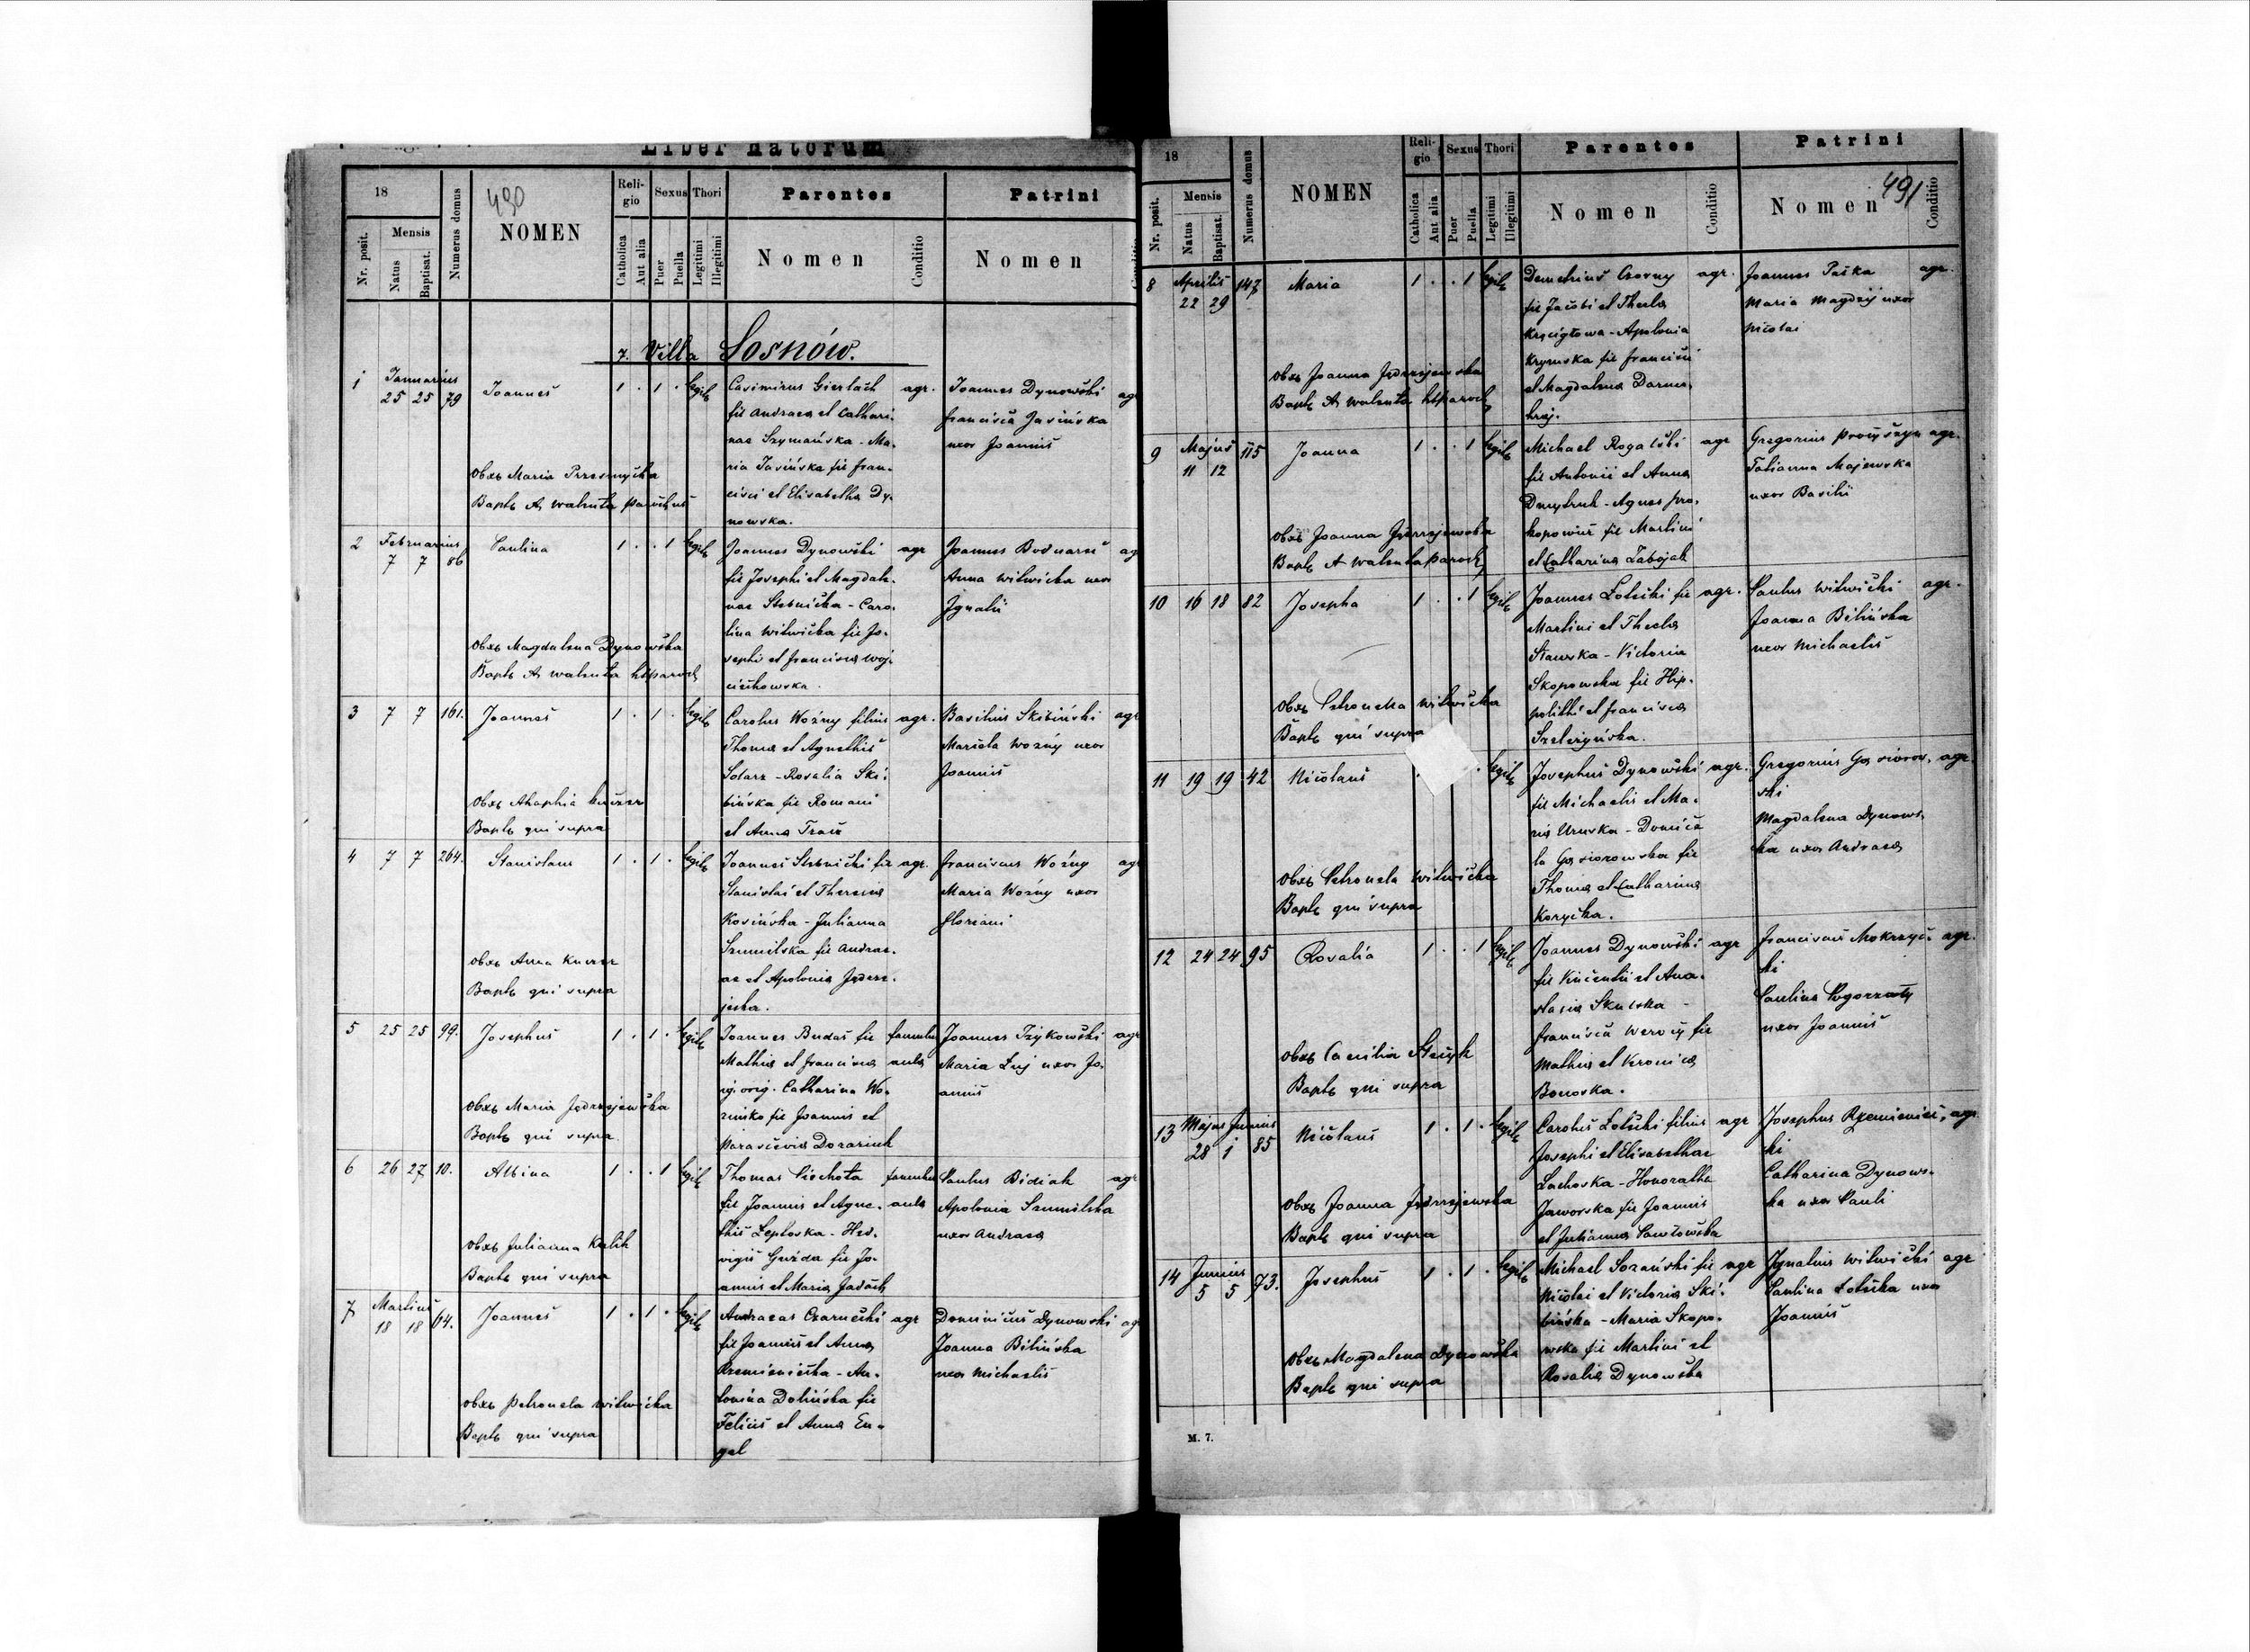 Liber natorum
18
490
NOMEN
Religio
Sexus
Thori
Parentes
Patrini
Nr. posit.
Mensis
Natus
Baptisat.
Numerus domus
Catholica
Aut alia
Puer
Puella
Legitimi
Illegitimi
Nomen
Conditio
Nomen
7. Villa Sosnów.
1 Januarius 25 25 79 Joannes 1 . 1 . legit
Casimirus Gierlach agr.
fil Andreae et Cathari-
nae Szymańska - Ma-
ria Jasińska fil Fran-
cisci et Elisabetha Dy-
nowska.
Joannes Dynowski ag
Francisca Jasińska
uxor Joannis
Obst Maria Przesmycka
Bapt A Waluta parochus
2 Februarius 7 7 86 Paulina 1 . . 1 legit
Joannes Dynowski agr
fil Josephi et Magdale-
nae Slebnicka - Caro-
lina Witwicka fil Jo-
sephi et Francisca Woj-
ciechowska.
Joannes Bodnaruk ag
Anna Witwicka uxor
Ignatii
Obst Magdalena Dynowska
Bapt A Waluta
3 7 7 161. Joannes 1 . 1 . legit
Carolus Woźny filius agr.
Thoma et Agnethis
Solarz - Rosalia Ski-
bińska fil Romani
et Anna
Basilius Skibiński agr
Mariola Woźny uxor
Joannis
Obst
Bapt qui supra
4 7 7 264. Stanislaus 1 . 1 . legit
Joannes Slebnicki fil agr.
Stanislai et Theresia
Kosińska - Julianna
Szumilska fil Andrae-
ae et Apolonia Jędrze-
jeska.
Franciscus Woźny agr
Maria Woźny uxor
Floriani
Obst Anna
Bapt qui supra
5 25 25 99. Josephus 1 . 1 . legit
Joannes Budas fil famulus
Mathia et Francisca aula
ig. orig. Catharina Wo-
zniska fil Joannis et
Joannes Tzykowski agr
Maria uxor Jo-
annis
Obst Maria Jędrzejewska
Bapt qui supra
6 26 27 10. Albina 1 . . 1 legit
Thomas Piechota famulus
fil Joannis et Agne- aula
this Leploska - Hed-
vigis Gwizda fil Jo-
annis et Maria
Paulus Bidiak agr
Apolonia Szumilska
uxor Andraea
Obst Julianna Kulik
Bapt qui supra
7 Martius 18 18 64. Joannes 1 . 1 . legit
Andraeas Czarnecki agr
fil Joannis et Anna
Krzemieniecka - An-
tonina Dolińska fil
Felicis et Anna En-
gel
Dominicus Dynowski ag
Joanna Bilińska
uxor Michaelis
Obst Petronela Witwicka
Bapt qui supra
18
NOMEN
Religio
Sexus
Thori
Parentes
Patrini
491
Nr. posit.
Mensis
Natus
Baptisat.
Numerus domus
Catholica
Aut alia
Puer
Puella
Legitimi
Illegitimi
Nomen
Conditio
Nomen
Conditio
8 Aprilis 22 29 147 Maria 1 . . 1 legit
Demetrius Czorny agr.
fil Jacobi et Thecla
Kręcigłowa - Apolonia
Krynska fil Francisci
et Magdalena
Joannes Paśka agr.
Maria Magdzij uxor
Nicolai
Obst Joanna Jędrzejewska
Bapt A Waluta
9 Majus 11 12 115 Joanna 1 . . 1 legit
Michael Rogalski agr
fil Antonii et Anna
Dmytruk - Agnes Pro-
kopowicz fil Martini
et Catharina Zabojak
Gregorius agr.
Tatianna Majewska
uxor Basilii
Obst Joanna Jędrzejewska
Bapt A Waluta paroch
10 16 18 82 Josepha 1 . . 1 legit
Joannes Lotecki fil agr.
Martini et Thecla
Stawska - Victoria
Skopowska fil Hip-
polithi et Francisca
Szeligińska.
Paulus Witwicki agr.
Joanna Bilińska
uxor Michaelis
Obst Petronella Witwicka
Bapt qui supra
11 19 19 42 Nicolaus . legit
Josephus Dynowski agr.
fil Michaelis et Ma-
ria Urwska - Domice-
la Gąsiorowska fil
Thoma et Catharina
Korycka.
Gregorius Gąsiorow- agr.
ski
Magdalena Dynows-
ka uxor Andraea
Obst Petronela Witwicka
Bapt qui supra
12 24 24 95 Rosalia 1 . . 1 legit
Joannes Dynowski agr
fil Vincentii et Ana-
stasia Skulska -
Francisca fil
Mathia et Veronica
Bonoska.
Franciscus Mokrzyc- agr.
ki
Paulina Pogorzały
uxor Joannis
Obst Caecilia
Bapt qui supra
13 Majus Junius 28 1 85 Nicolaus 1 . 1 . legit
Carolus Lotecki filius agr
Josephi et Elisabethae
Lachoska - Honoratha
Jaworska fil Joannis
et Julianna Pawłowska
Josephus Krzemieniec- agr.
ki
Catharina Dynows-
ka uxor Pauli
Obst Joanna Jędrzejewska
Bapt qui supra
14 Junius 5 5 73. Josephus 1 . 1 . legit
Michael Sozański fil agr
Nicolai et Victoria Ski-
bińska - Maria Skopo-
wska fil Martini et
Rosalia Dynowska
Ignatius Witwicki agr
Paulina Lotecka uxor
Joannis
Obst Magdalena Dynowska
Bapt qui supra
M. 7.